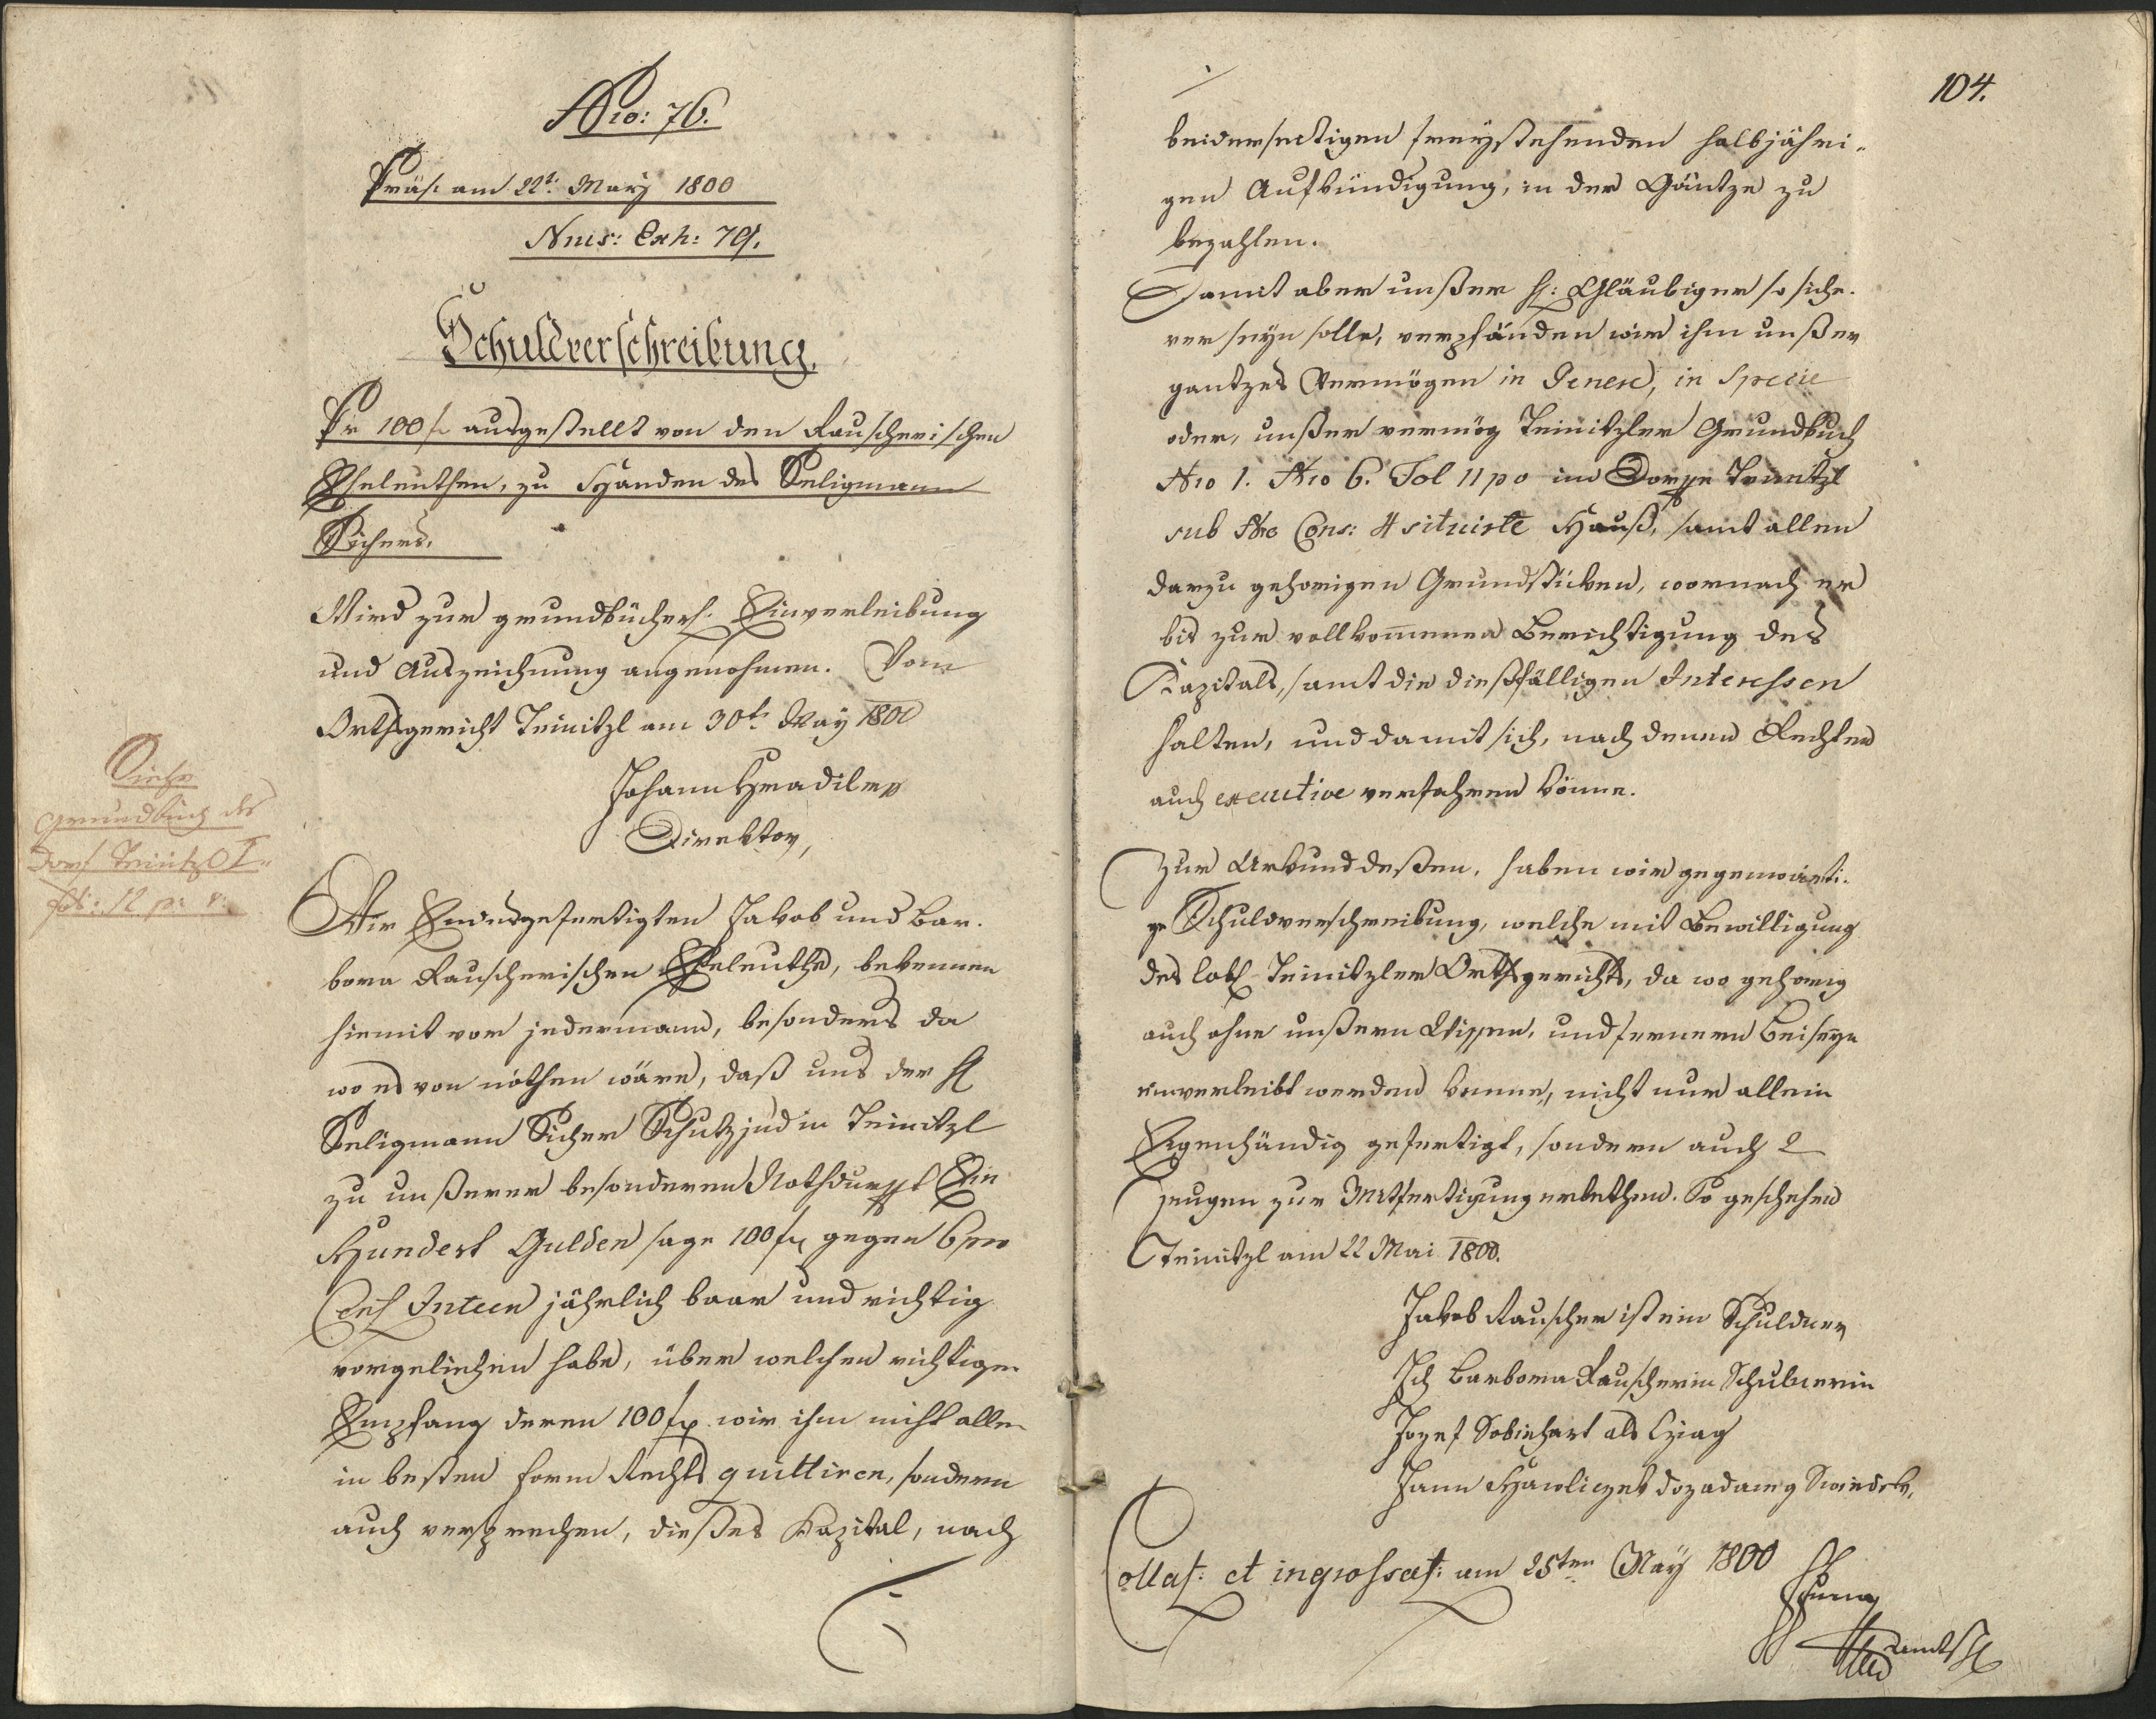 Nro: 76.
Präs. am 22t. May 1800
Nrus: Exh: 79.
Schuldverschreibung.
Pr 100 f ausgestellt von den Rauscherischen
Eheleuthen, zu Handen des Seligmann
Sichers.
Wird zur grundbücherl. Einverleibung
und Auszeichnung angenohmen. Vom
Orthsgericht Teinitzl am 30t. May 1800
Johann Hradiler
Direktor,
Siehe
Grundbuch des
Dorf Teinitzl I
fol: 12 p. v.
Wir Endesgefertigten Jakob und Bar.
bora Rauscherischen Eheleuthe, bekennen
hiemit vor jedermann, besonders da
wo es von nöthen wäre, daß uns der H
Seligmann Sicher Schutzjud in Teinitzl
zu unßerer besonderen Nothdurfft Ein
Hundert Gulden sage 100 f gegen 6 pro
Cent Inteen jährlich baar und richtig
vorgeliehen habe, über welchen richtigen
Empfang deren 100 f wir ihm nicht allen
in besten Form Rechts quittiren, sondern
auch versprechen, dießes Kapital, nach
104.
beiderseitigen freystehenden halbjähri-
gen Aufkündigung, in der Gäntze zu
bezahlen.
Damit aber unßer H: Gläubiger so siche.
rer seyn solle, verpfänden wir ihm unßer
gantzes Vermögen in Genere, in Specie
oder, unßer vermög Teinitzler Grundbuch
Nro 1. Nro 6. Fol 11 po im Dorfe Teinitzl
sub Nro Cons: 4 situirte Hauß, samt allen
darzu gehorigen Grundstüken, wornach er
bis zur vollkommenen Berichtigung des
Kapitals, samt die dießfälligen Interessen
halten, und damit sich, nach denen Rechten
auch executive verfahren könne.
Zur Urkund deßen, haben wir gegenwärti.
ge Schuldverschreibung, welche mit Bewilligung
des lobl. Teinitzler Orthsgerichts, da wo gehorig
auch ohne unßern Wissen, und fernern Beiseyn
einverleibt werden könne, nicht nur allein
Eigenhändig gefertigt, sondern auch 2
Zeugen zur Mitfertigung erbethen. So geschehen
Teinitzl am 22 Mai 1800.
Jakob Rauscher ist ein Schuldner
Ich Barbora Rauscherin Schulnerin
Jozef Sobiehart als
Jann Hawliczek dozadany Swiedek.
Collat: et ingrossat: am 25ten May 1800